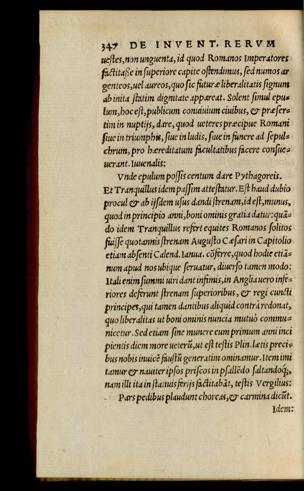 347 DE INVENT. RERVM
uestes, non unguenta, id quod Romanos Imperatores
factitasse in superiore capite ostendimus, sed numos ar
genteos, uel aureos, quo sic futuræ liberalitatis signum
ab inita statim dignitate appareat. Solent simul epu-
lum, hoc est, publicum conuiuium ciuibus, & præser-
tim in nuptijs, dare, quod ueteres præcipue Romani
siue in triumphis, siue in ludis, siue in funere ad sepul-
chrum, pro hæreditatum facultatibus facere consue-
uerant. Iuuenalis:
Vnde epulum possis centum dare Pythagoreis.
Et Tranquillus idem passim attestatur. Est haud dubio
procul & ab ijsdem usus dandi strenam, id est, munus,
quod in principio anni, boni ominis gratia datur: quã-
do idem Tranquillus refert equites Romanos solitos
fuisse quotannis strenam Augusto Cæsari in Capitolio
etiam absenti Calend. Ianua. cõferre, quod hodie etiã-
num apud nos ubique seruatur, diuerso tamen modo:
Itali enim summi uiri dant infimis, in Anglia uero infe-
riores deferunt strenam superioribus, & regi cuncti
principes, qui tamen dantibus aliquid contrà redonat,
quo liberalitas ut boni ominis nuncia mutuò commu-
nicetur. Sed etiam sine munere eum primum anni inci
pientis diem more ueterũ, ut est testis Plin. lætis preci-
bus nobis inuicẽ faustũ generatim ominamur. Item imi
tamur & nauiter ipsos priscos in psallẽdo saltandoq́;,
nam illi ita in statiuis ferijs factitabãt, testis Vergilius:
Pars pedibus plaudunt choreas, & carmina dicũt.
Idem: